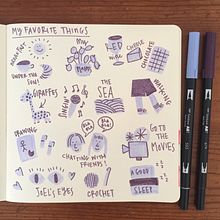 MY FAVORITE THINGS
UNDER THE SUN!
MY
MOM
RED
WINE
CHEESE
CHOCOLATE
GIRAFFES
SINGIN'
THE
SEA
WALKING
DRAWING
BLA
BLA
BLA!
CHATTING WITH
FRIENDS!
GO TO
THE
MOVIES
JOEL'S EYES
CROCHET
A GOOD
SLEEP